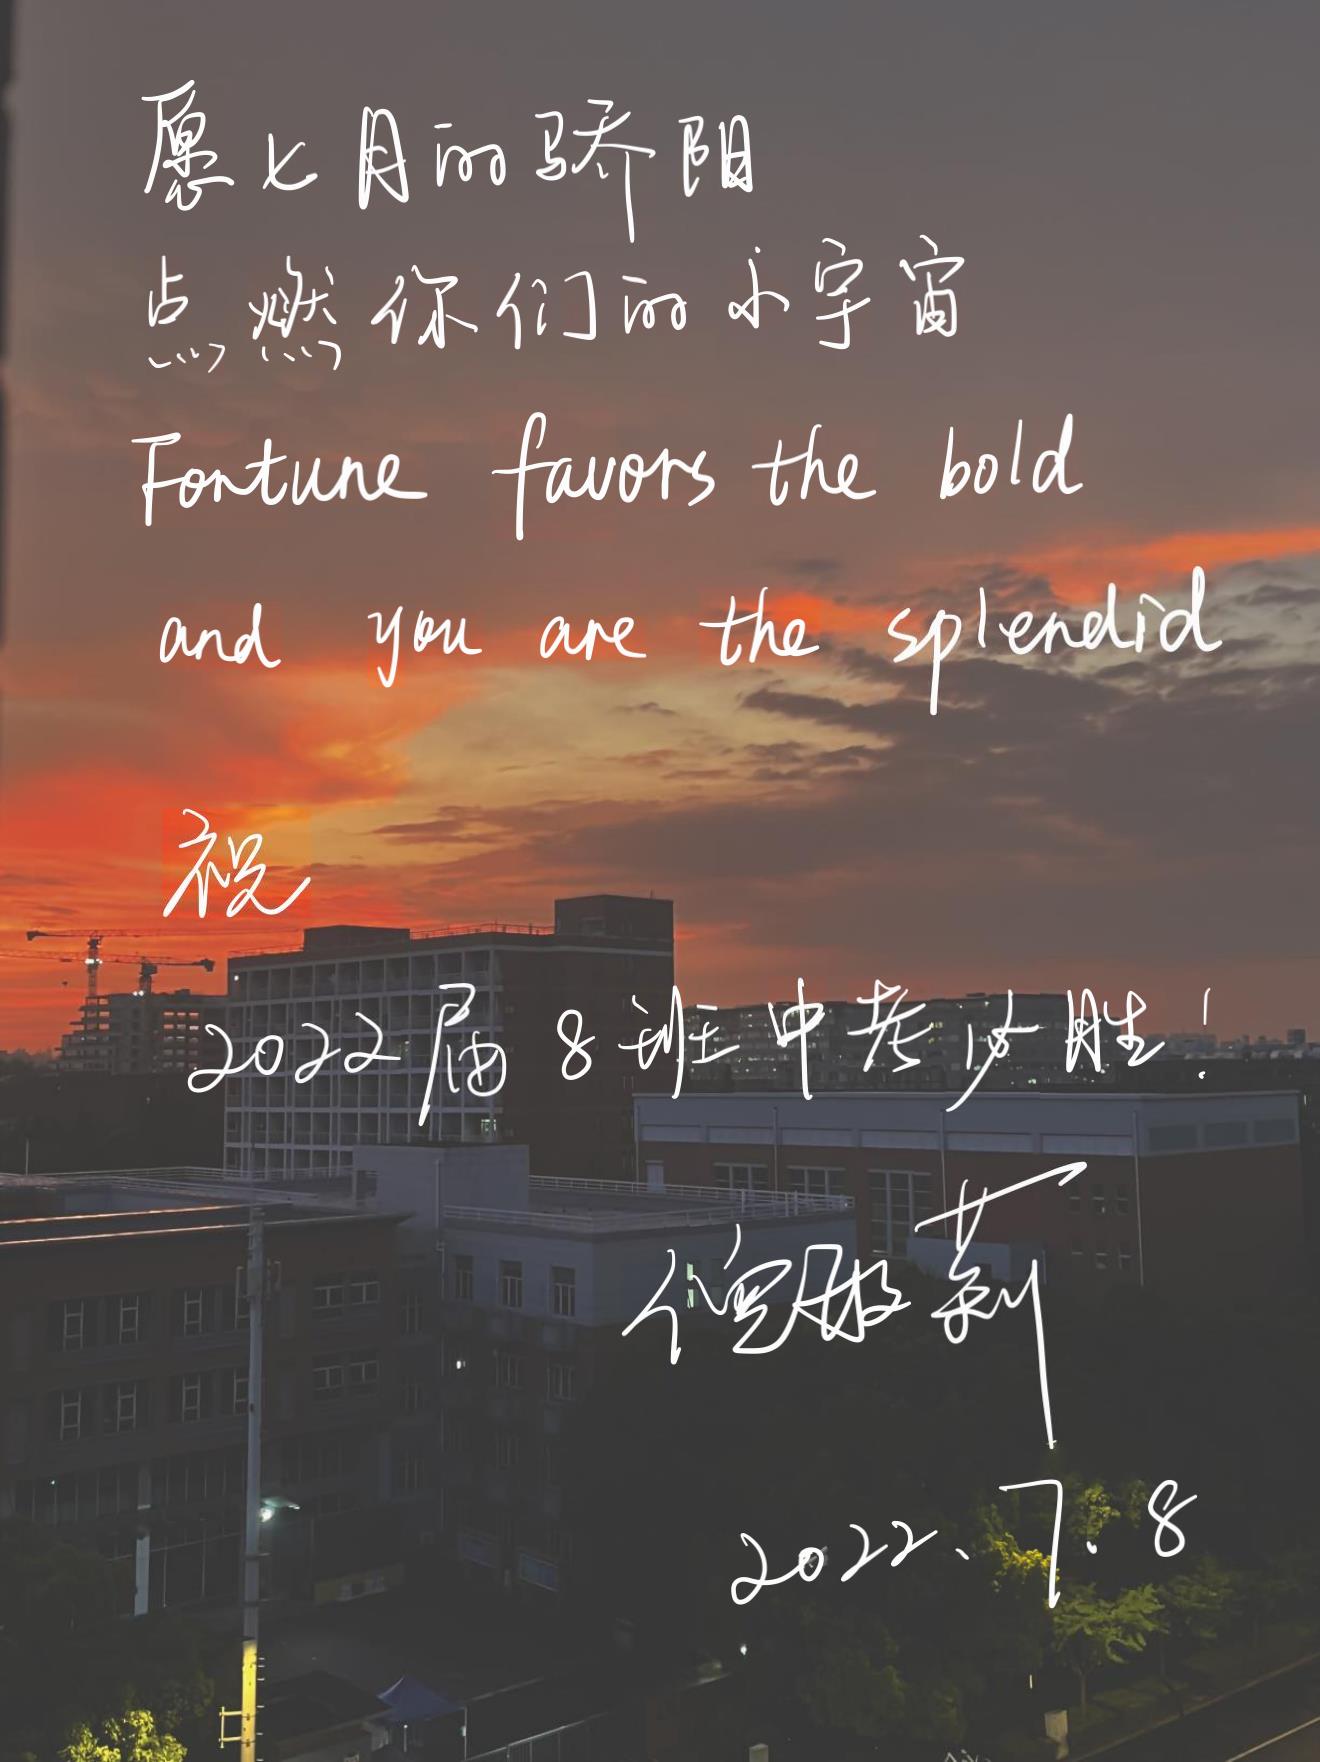 愿七月的骄阳
点燃你们的小宇宙
Fortune favors the bold
and you are the splendid
祝
2022届8班中考必胜!
莉
2022.7.8